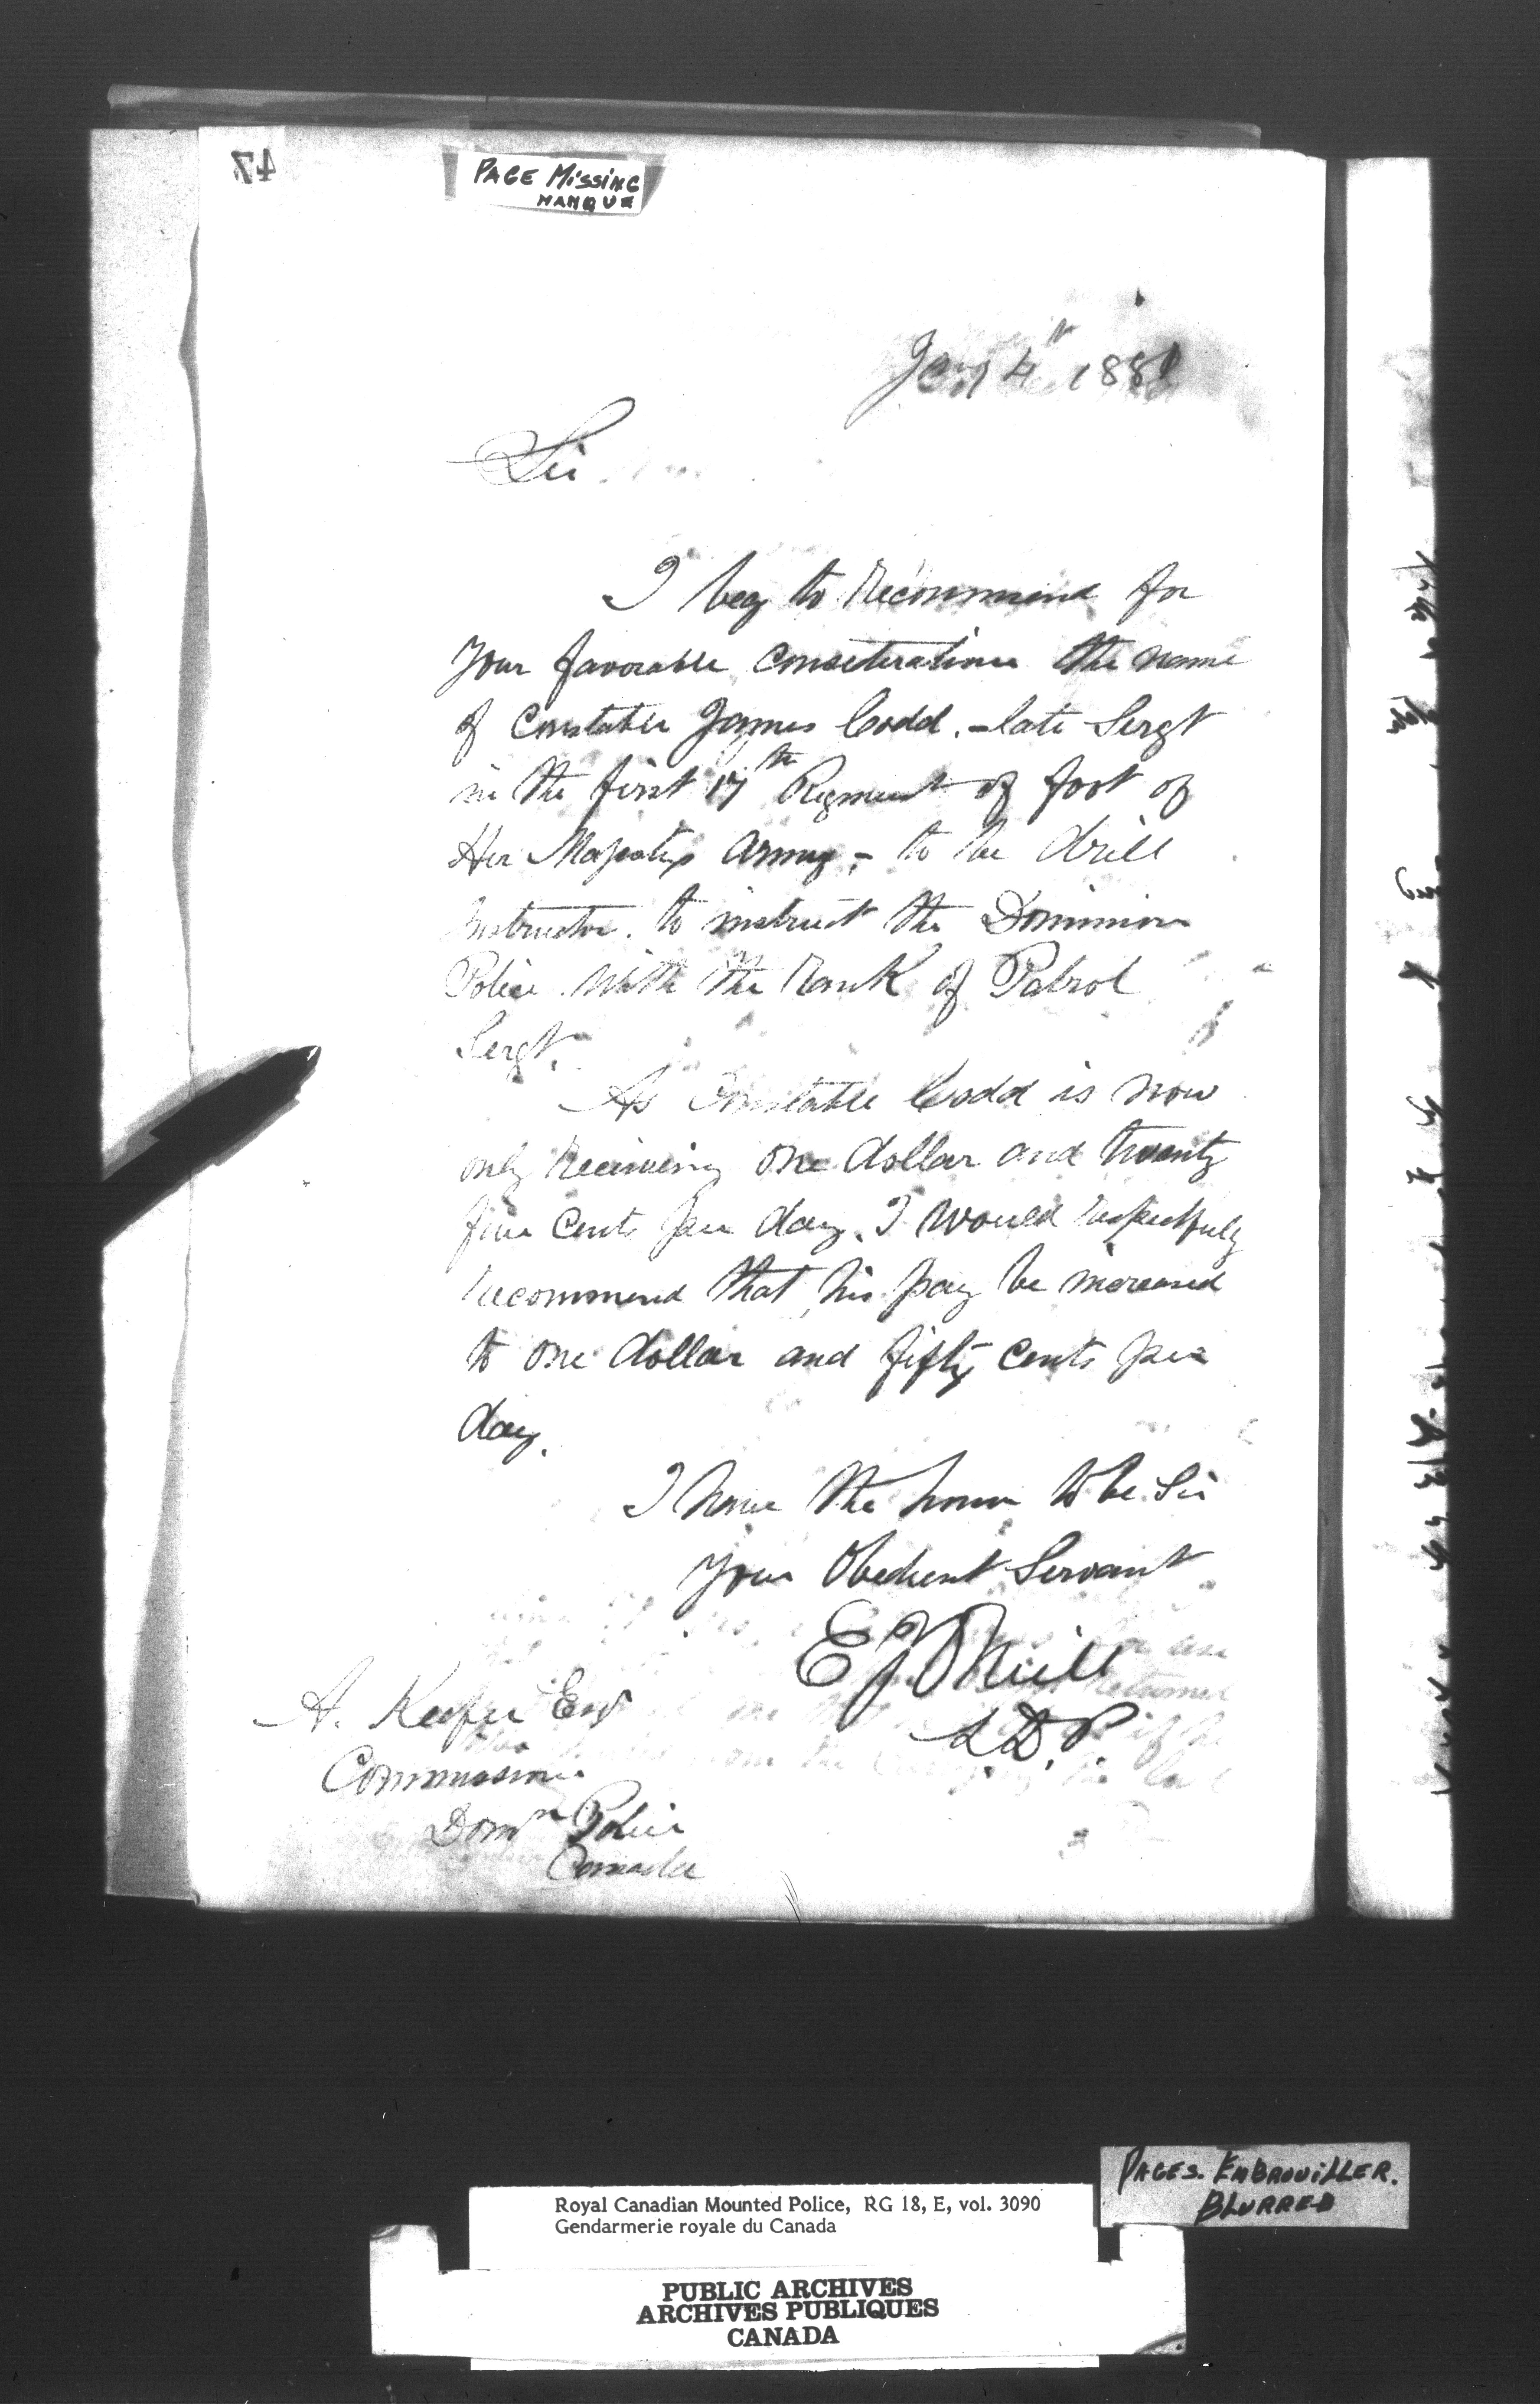 47
PAGE MISSING
MANQUE
Jany 4th 1881
Sir
I beg to recommend for
your favorable consideration the name
of Constable James Codd. - late Sergt
in the first 17th Regment of foot of
Her Majestys Army, - to be drill
instructor. to instruct the Dominion
Police with the rank of Patrol
Sergt.
As Constable Codd is now
only receiving one dollar and twenty
five cents per day. I would respectfuly
recommend that his pay be increased
to one dollar and fifty cents per
day.
I have the honor to be Sir
Your Obedient Servant
E J O'Neill
S.D.P.
A. Keefer Esqr
Commissioner
Domn Police
Canada
PAGES. EMBROUILLER.
BLURRED
Royal Canadian Mounted Police, RG 18, E, vol. 3090
Gendarmerie royale du Canada
PUBLIC ARCHIVES
ARCHIVES PUBLIQUES
CANADA